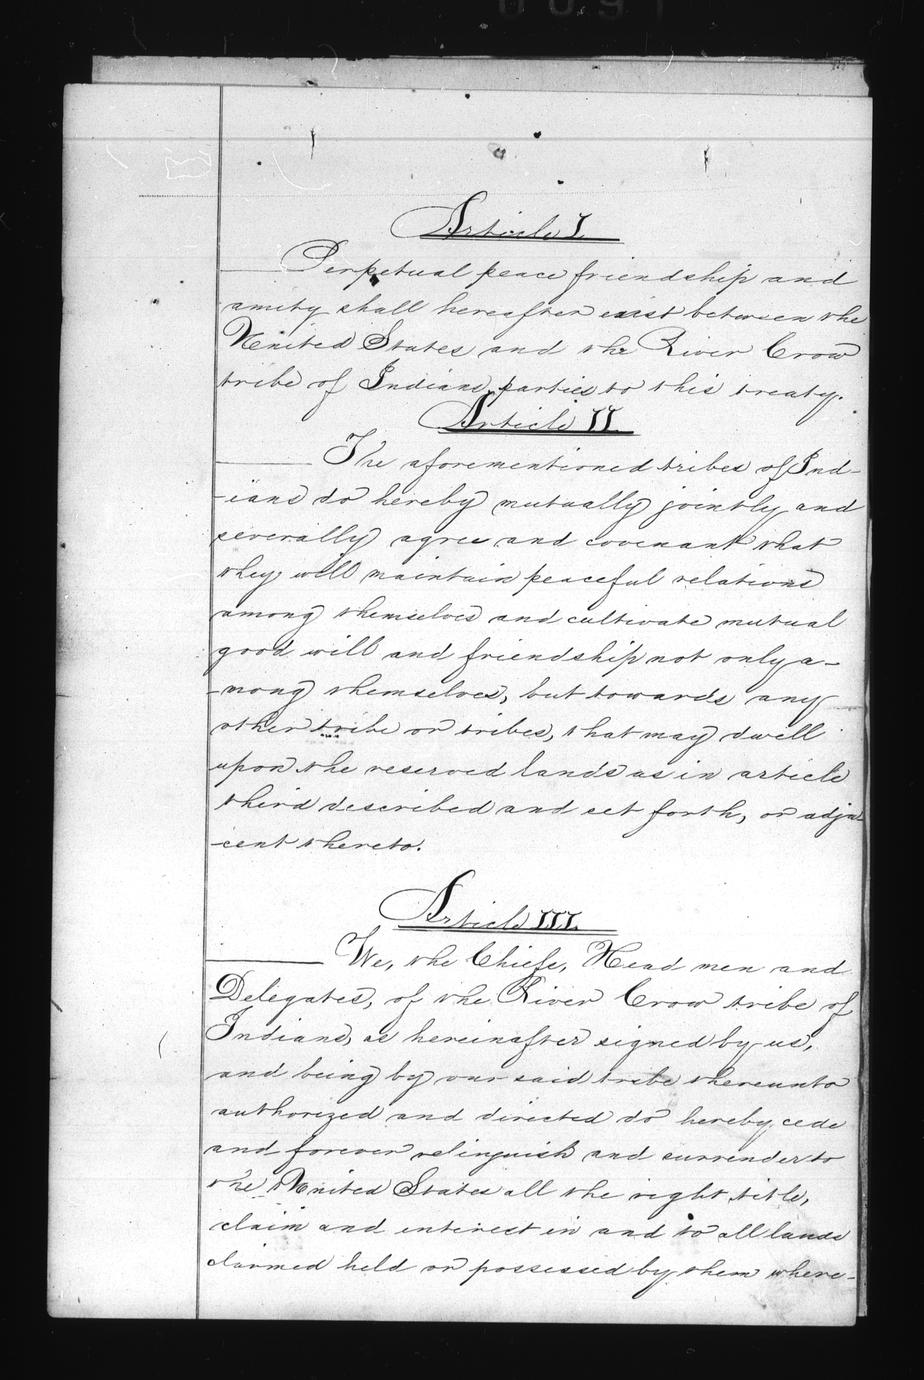 Article I.
Perpetual peace friendship and
amity shall hereafter exist between the
United States and the River Crow
tribe of Indians, parties to this treaty.
Article II.
The aforementioned tribes of Ind-
-ians do hereby mutually jointly and
severally agree and covenant that
they will maintain peaceful relations
among themselves and cultivate mutual
good will and friendship not only a-
-mong themselves, but towards any
other tribe or tribes, that may dwell
upon the reserved lands as in article
third described and set forth, or adja-
-cent thereto.
Article III.
We, the Chiefs, Head men and
Delegates, of the River Crow tribe of
Indians, as hereinafter signed by us,
and being by our said tribe thereunto
authorized and directed do hereby cede
and forever relinquish and surrender to
the United States all the right, title,
claim and interest in and to all lands
claimed held or possessed by them where-